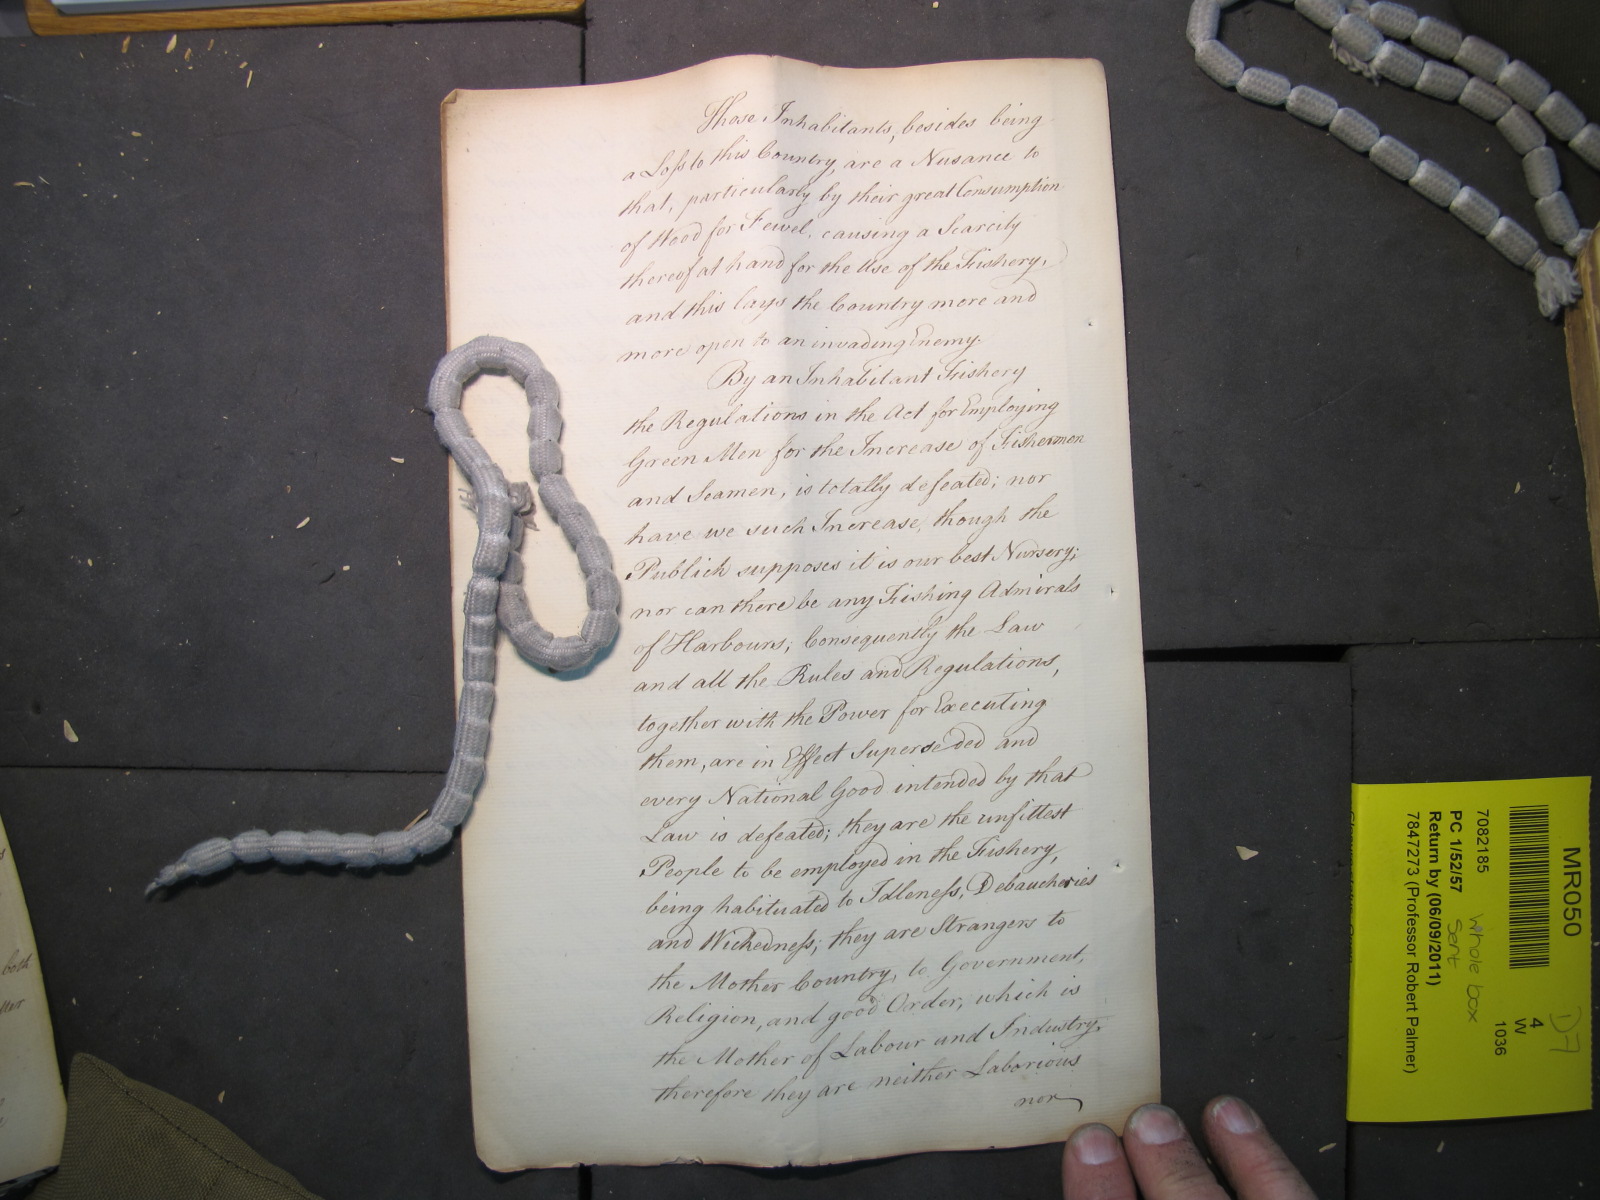 Those Inhabitants, besides being
a Loss to this Country, are a Nusance to
that, particularly by their great Consumption
of Wood for Fewel, causing a Scarcity
thereof at hand for the Use of the Fishery,
and this lays the Country more and
more open to an invading Enemy.
By an Inhabitant Fishery
the Regulations in the Act for Employing
Green Men for the Increase of Fishermen
and Seamen, is totally defeated; nor
have we such Increase, though the
Publick supposes it is our best Nursery;
nor can there be any Fishing Admirals
of Harbours; Consequently the Law
and all the Rules and Regulations,
together with the Power for Executing
them, are in Effect Superseded and
every National Good intended by that
Law is defeated; they are the unfittest
People to be employed in the Fishery,
being habituated to Idleness, Debaucheries
and Wickedness; they are Strangers to
the Mother Country, to Government,
Religion, and good Order, which is
the Mother of Labour and Industry,
therefore they are neither Laborious
nor
both
MR050
D7
4
W
1036
7082185
whole box
sent
PC 1/52/57
Return by (06/09/2011)
7847273 (Professor Robert Palmer)